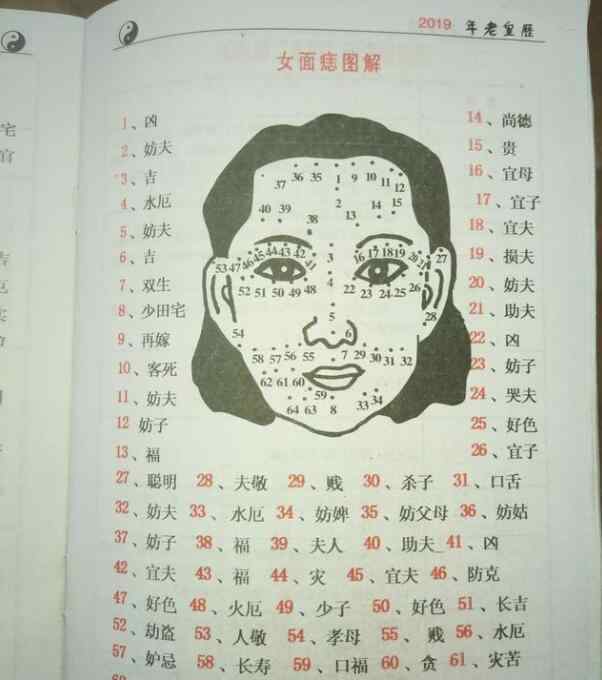 2019 年老皇歷
女面痣图解
1、凶
2、妨夫
3、吉
4、水厄
5、妨夫
6、吉
7、双生
8、少田宅
9、再嫁
10、客死
11、妨夫
12 妨子
13、福
14、尚德
15、贵
16、宜母
17、宜子
18、宜夫
19、损夫
20、妨夫
21、助夫
22、凶
23、妨子
24、哭夫
25、好色
26、宜子
37 36 35 1 9 10 11 12
40 39 2 14 15
38 13
53 47 46 45 44 43 42 41 3 16 17 18 19 20 21 27
52 51 50 49 48 4 22 23 24 25 26
5 28
54 6
58 57 56 55 7 29 30 31 32
62 61 60
59 34
64 63 8 33
27、聪明 28、夫敬 29、贱 30、杀子 31、口舌
32、妨夫 33、水厄 34、妨婢 35、妨父母 36、妨姑
37、妨子 38、福 39、夫人 40、助夫 41、凶
42、宜夫 43、福 44、灾 45、宜夫 46、防克
47、好色 48、火厄 49、少子 50、好色 51、长吉
52、劫盗 53、人敬 54、孝母 55、贱 56、水厄
57、妒忌 58、长寿 59、口福 60、贪 61、灾苦